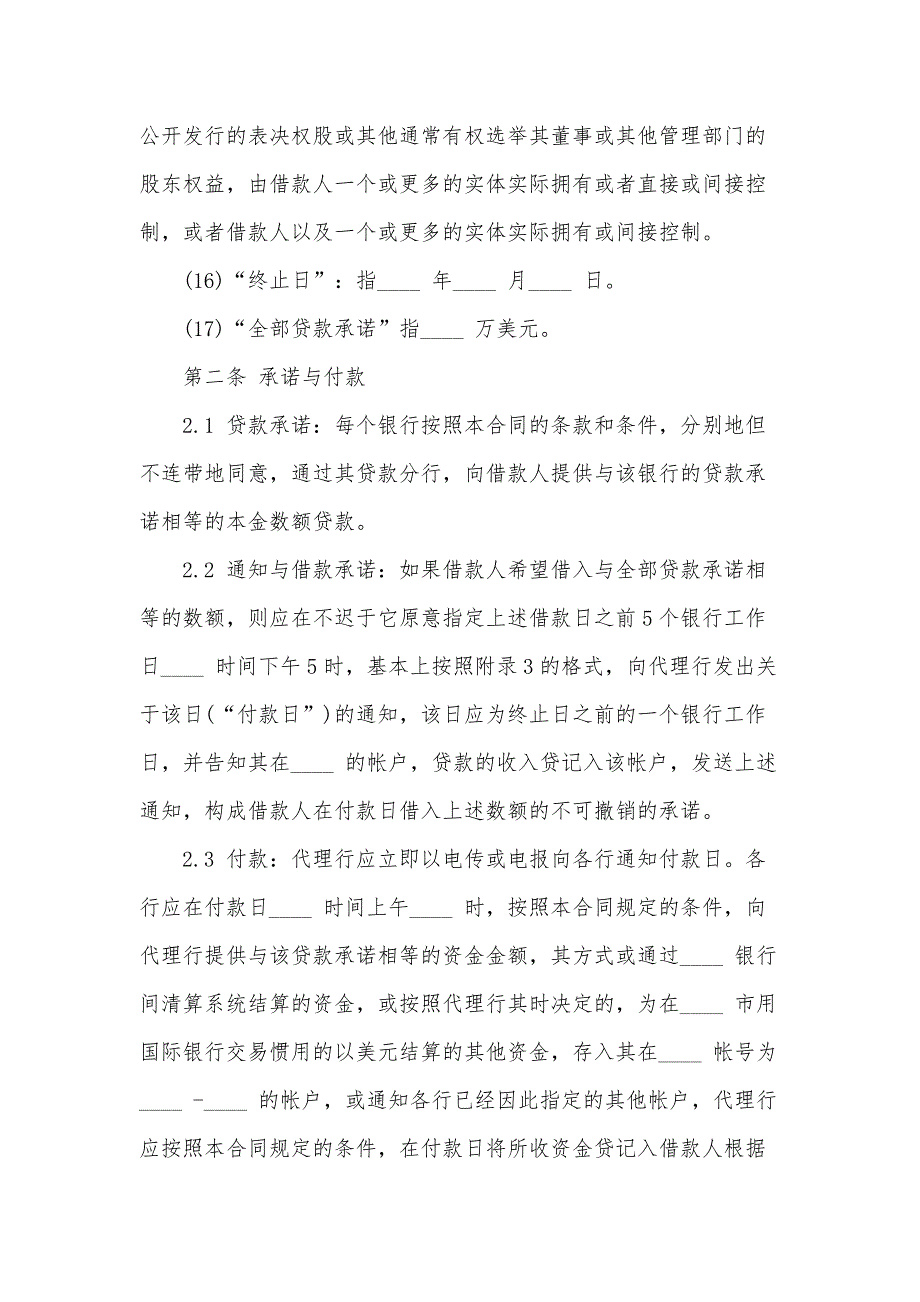 公开发行的表决权股或其他通常有权选举其董事或其他管理部门的
股东权益，由借款人一个或更多的实体实际拥有或者直接或间接控
制，或者借款人以及一个或更多的实体实际拥有或间接控制。
(16)“终止日”：指____ 年____ 月____ 日。
(17)“全部贷款承诺”指____ 万美元。
第二条 承诺与付款
2.1 贷款承诺：每个银行按照本合同的条款和条件，分别地但
不连带地同意，通过其贷款分行，向借款人提供与该银行的贷款承
诺相等的本金数额贷款。
2.2 通知与借款承诺：如果借款人希望借入与全部贷款承诺相
等的数额，则应在不迟于它原意指定上述借款日之前5个银行工作
日____ 时间下午5时，基本上按照附录3的格式，向代理行发出关
于该日(“付款日”)的通知，该日应为终止日之前的一个银行工作
日，并告知其在____ 的帐户，贷款的收入贷记入该帐户，发送上述
通知，构成借款人在付款日借入上述数额的不可撤销的承诺。
2.3 付款：代理行应立即以电传或电报向各行通知付款日。各
行应在付款日____ 时间上午____ 时，按照本合同规定的条件，向
代理行提供与该贷款承诺相等的资金金额，其方式或通过____ 银行
间清算系统结算的资金，或按照代理行其时决定的，为在____ 市用
国际银行交易惯用的以美元结算的其他资金，存入其在____ 帐号为
____ -____ 的帐户，或通知各行已经因此指定的其他帐户，代理行
应按照本合同规定的条件，在付款日将所收资金贷记入借款人根据